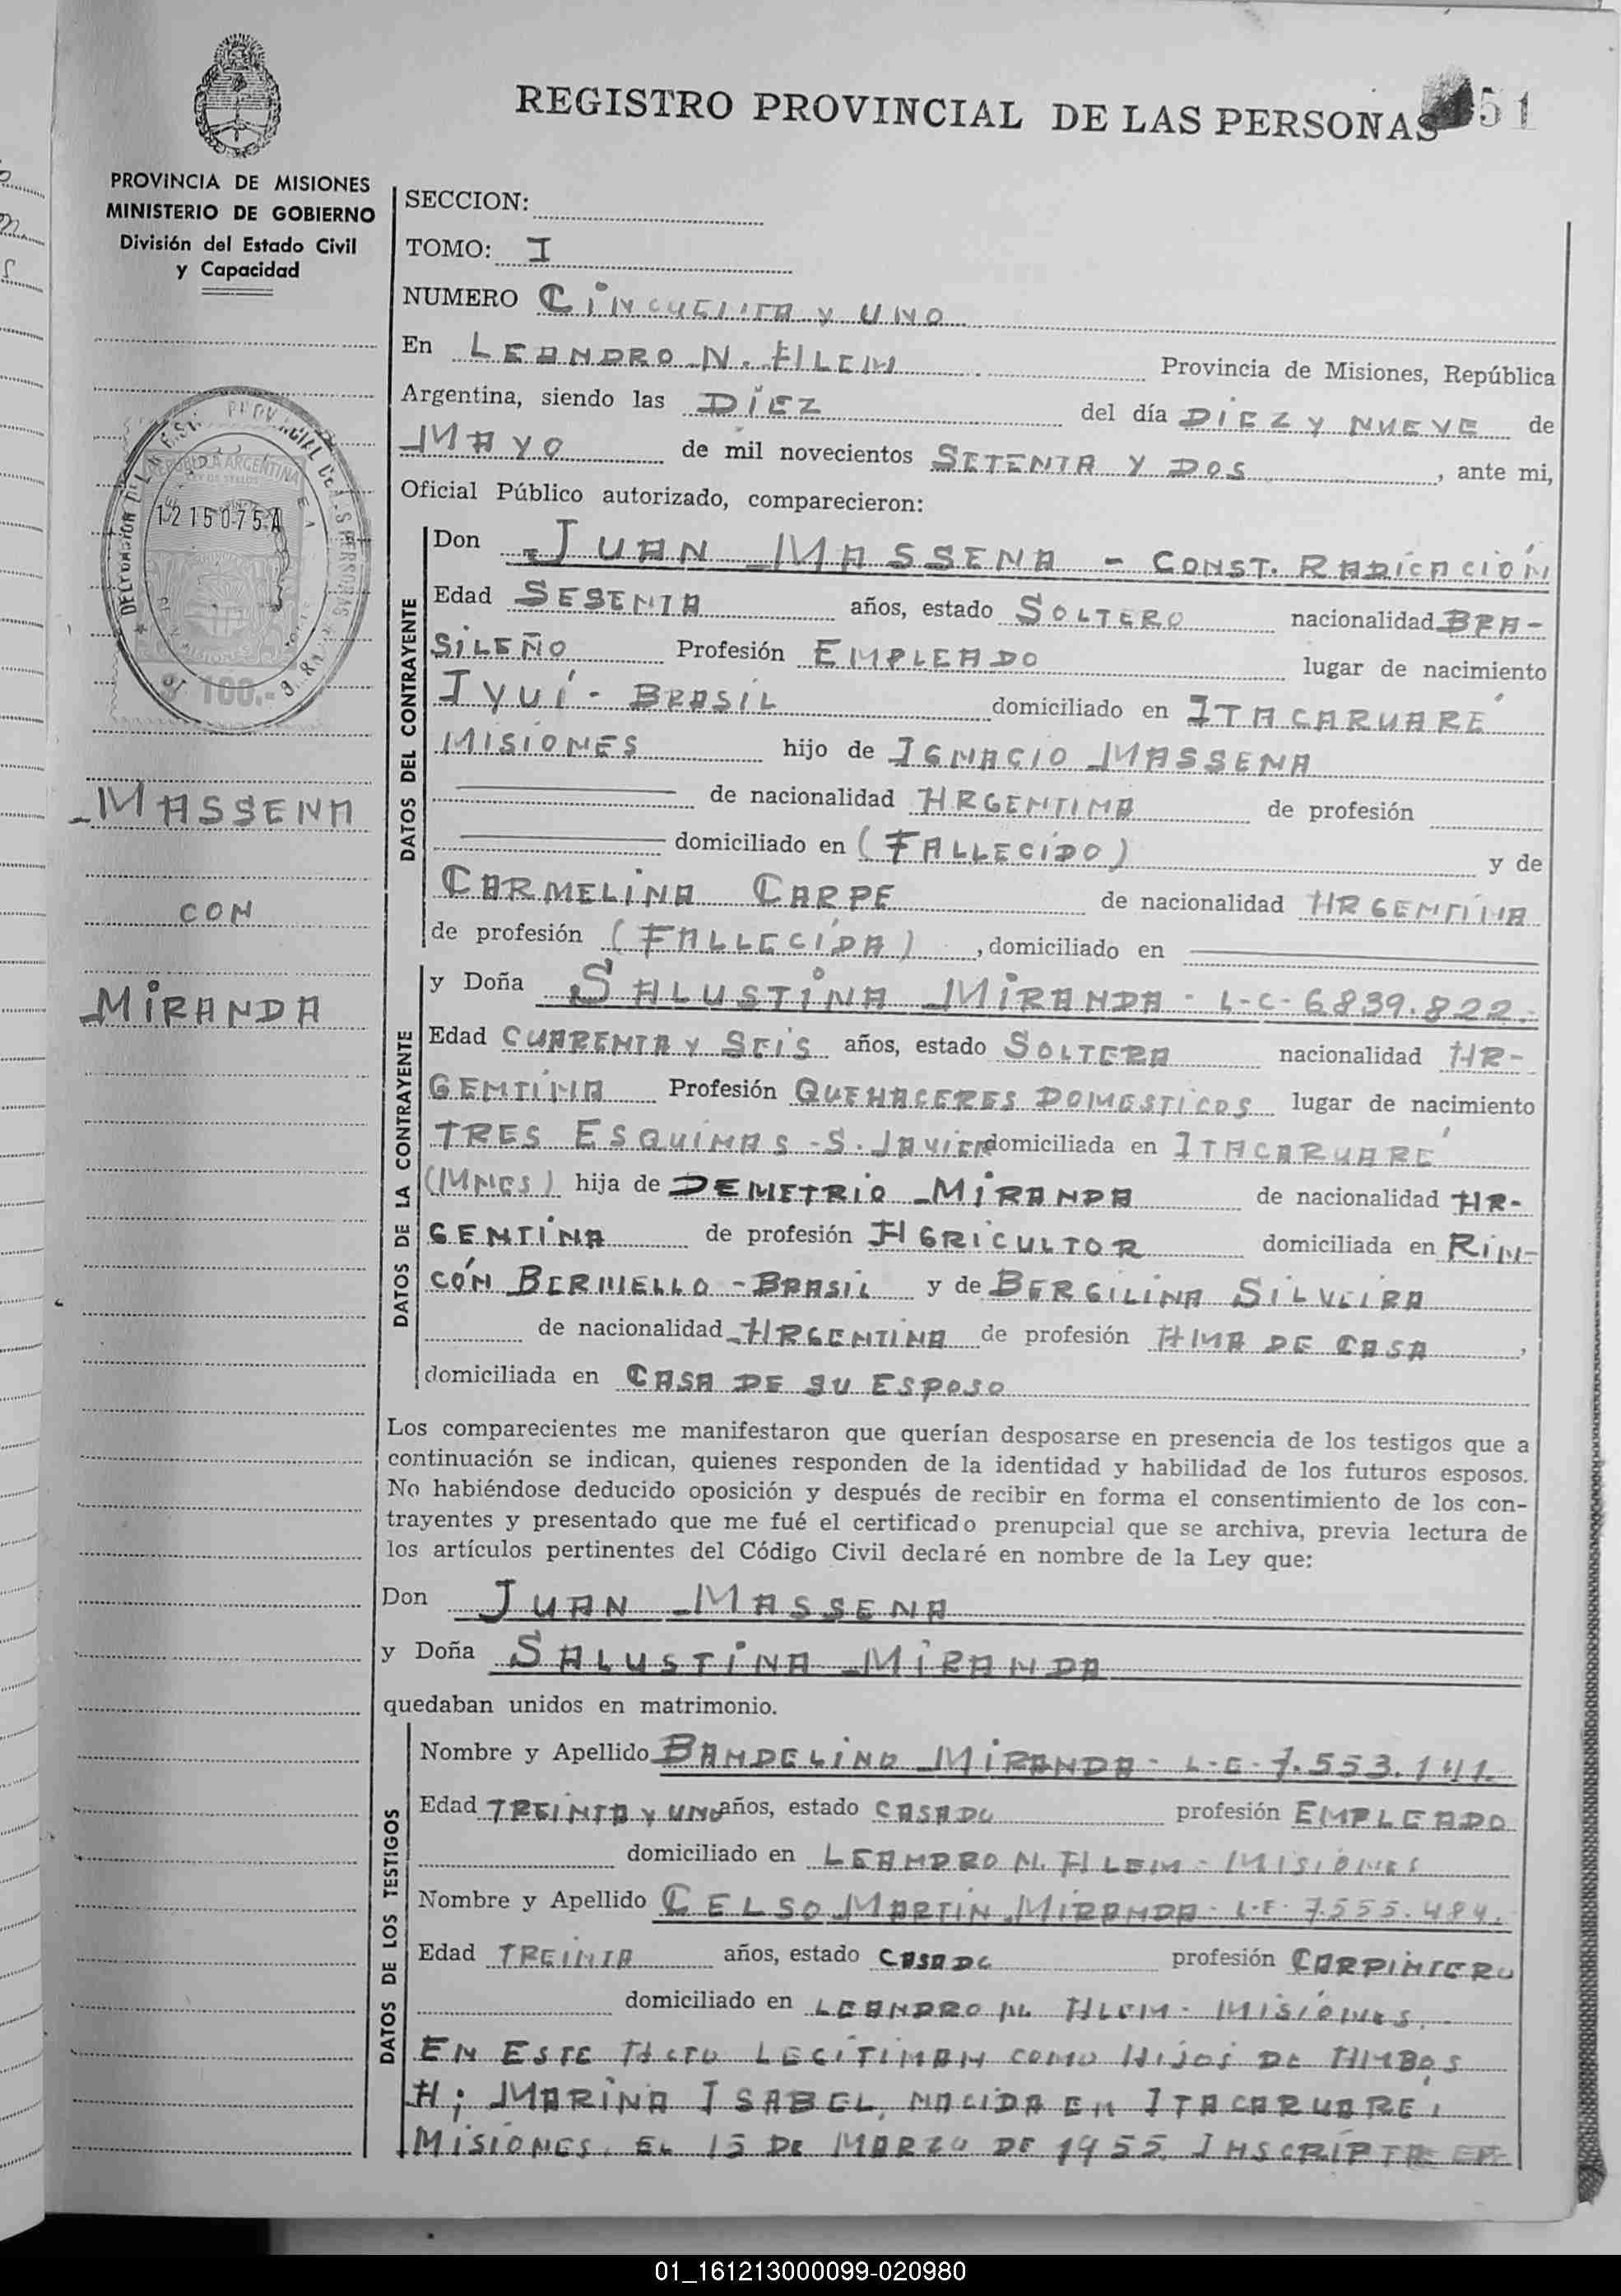 REGISTRO PROVINCIAL DE LAS PERSONAS 51
PROVINCIA DE MISIONES
MINISTERIO DE GOBIERNO
División del Estado Civil
y Capacidad
SECCION:
TOMO: I
NUMERO CINCUENTA Y UNO
En LEANDRO N. ALEM Provincia de Misiones, República
Argentina, siendo las DIEZ del día DIEZ Y NUEVE de
MAYO de mil novecientos SETENTA Y DOS, ante mi,
Oficial Público autorizado, comparecieron:
REPUBLICA ARGENTINA
LEY DE SELLOS
1215075A
MISIONES
100.-
DATOS DEL CONTRAYENTE
Don JUAN MASSENA - CONST. RADICACIÓN
Edad SESENTA años, estado SOLTERO nacionalidad BRA-
SILEÑO Profesión EMPLEADO lugar de nacimiento
IYUÍ - BRASIL domiciliado en ITACARUARÉ
MISIONES hijo de IGNACIO MASSENA
de nacionalidad ARGENTINA de profesión
domiciliado en (FALLECIDO) y de
CARMELINA CARPE de nacionalidad ARGENTINA
de profesión (FALLECIDA), domiciliado en
MASSENA
CON
MIRANDA
DATOS DE LA CONTRAYENTE
y Doña SALUSTINA MIRANDA - L-C- 6839.822.-
Edad CUARENTA Y SEIS años, estado SOLTERA nacionalidad AR-
GENTINA Profesión QUEHACERES DOMESTICOS lugar de nacimiento
TRES ESQUINAS - S. JAVIER domiciliada en ITACARUARÉ
(MNES) hija de DEMETRIO MIRANDA de nacionalidad AR-
GENTINA de profesión AGRICULTOR domiciliada en RIN-
CÓN BERMELLO - BRASIL y de BERGILINA SILVEIRA
de nacionalidad ARGENTINA de profesión AMA DE CASA,
domiciliada en CASA DE SU ESPOSO
Los comparecientes me manifestaron que querían desposarse en presencia de los testigos que a
continuación se indican, quienes responden de la identidad y habilidad de los futuros esposos.
No habiéndose deducido oposición y después de recibir en forma el consentimiento de los con-
trayentes y presentado que me fué el certificado prenupcial que se archiva, previa lectura de
los artículos pertinentes del Código Civil declaré en nombre de la Ley que:
Don JUAN MASSENA
y Doña SALUSTINA MIRANDA
quedaban unidos en matrimonio.
DATOS DE LOS TESTIGOS
Nombre y Apellido BANDELINO MIRANDA - L-E- 7.553.141.
Edad TREINTA Y UNO años, estado CASADO profesión EMPLEADO
domiciliado en LEANDRO N. ALEM - MISIONES
Nombre y Apellido CELSO MARTIN MIRANDA - L-E- 7.555.484.
Edad TREINTA años, estado CASADO profesión CARPINTERO
domiciliado en LEANDRO N. ALEM - MISIONES.
EN ESTE ACTO LEGITIMAN COMO HIJOS DE AMBOS
A; MARINA ISABEL, NACIDA EN ITACARUARÉ,
MISIONES, EL 15 DE MARZO DE 1955, INSCRIPTA EN
01_161213000099-020980